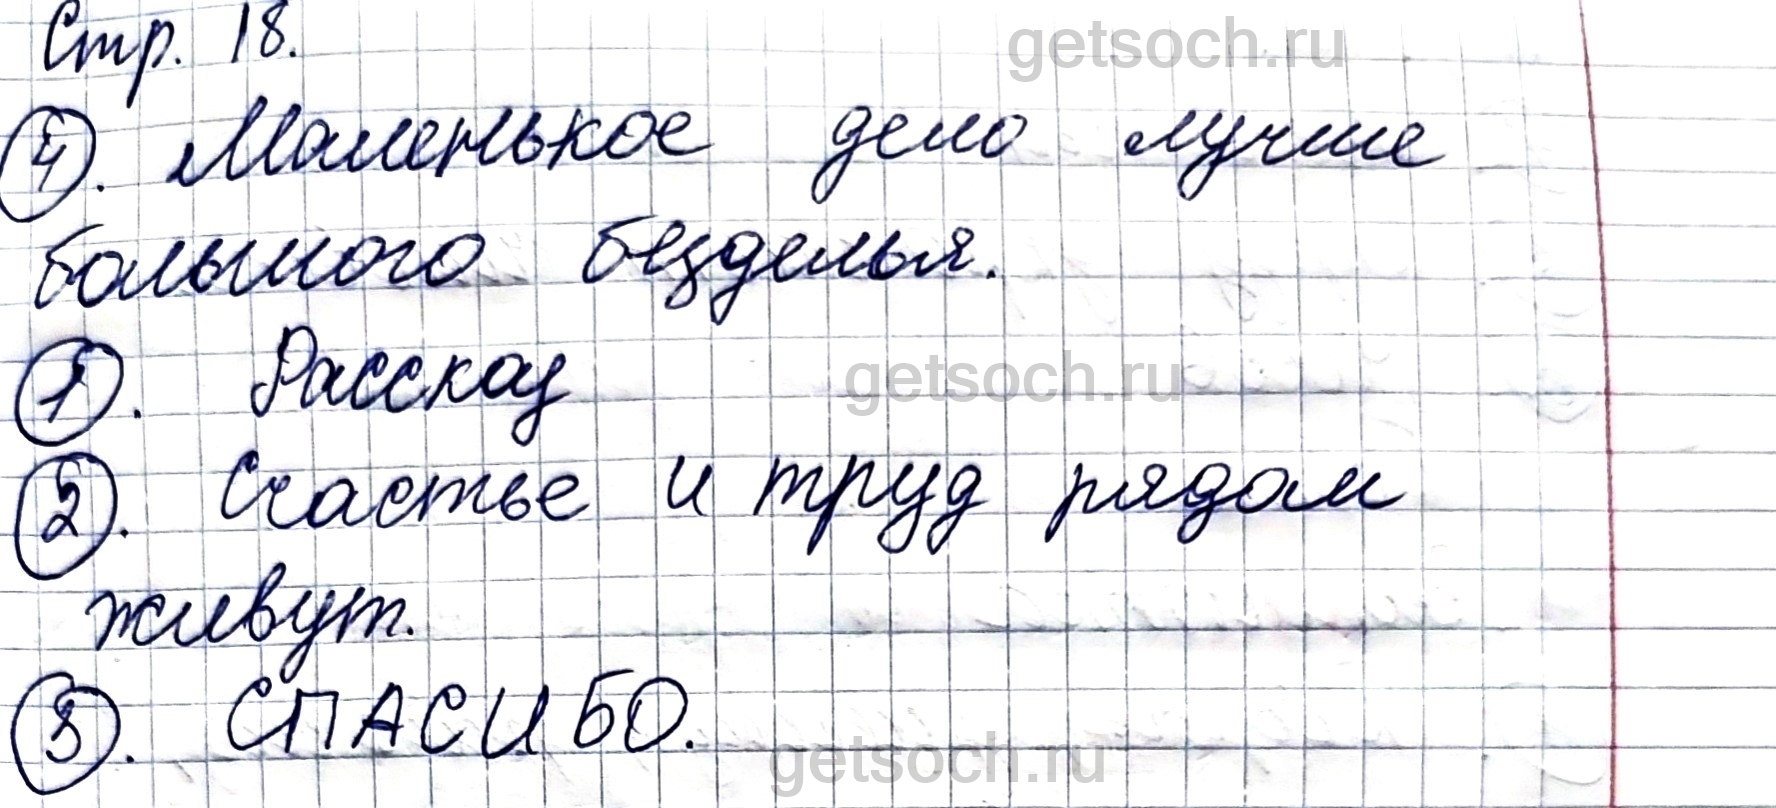 Стр. 18. getsoch.ru
④. Маленькое дело лучше
большого безделья.
①. Рассказ getsoch.ru
②. Счастье и труд рядом
живут.
③. СПАСИБО. getsoch.ru